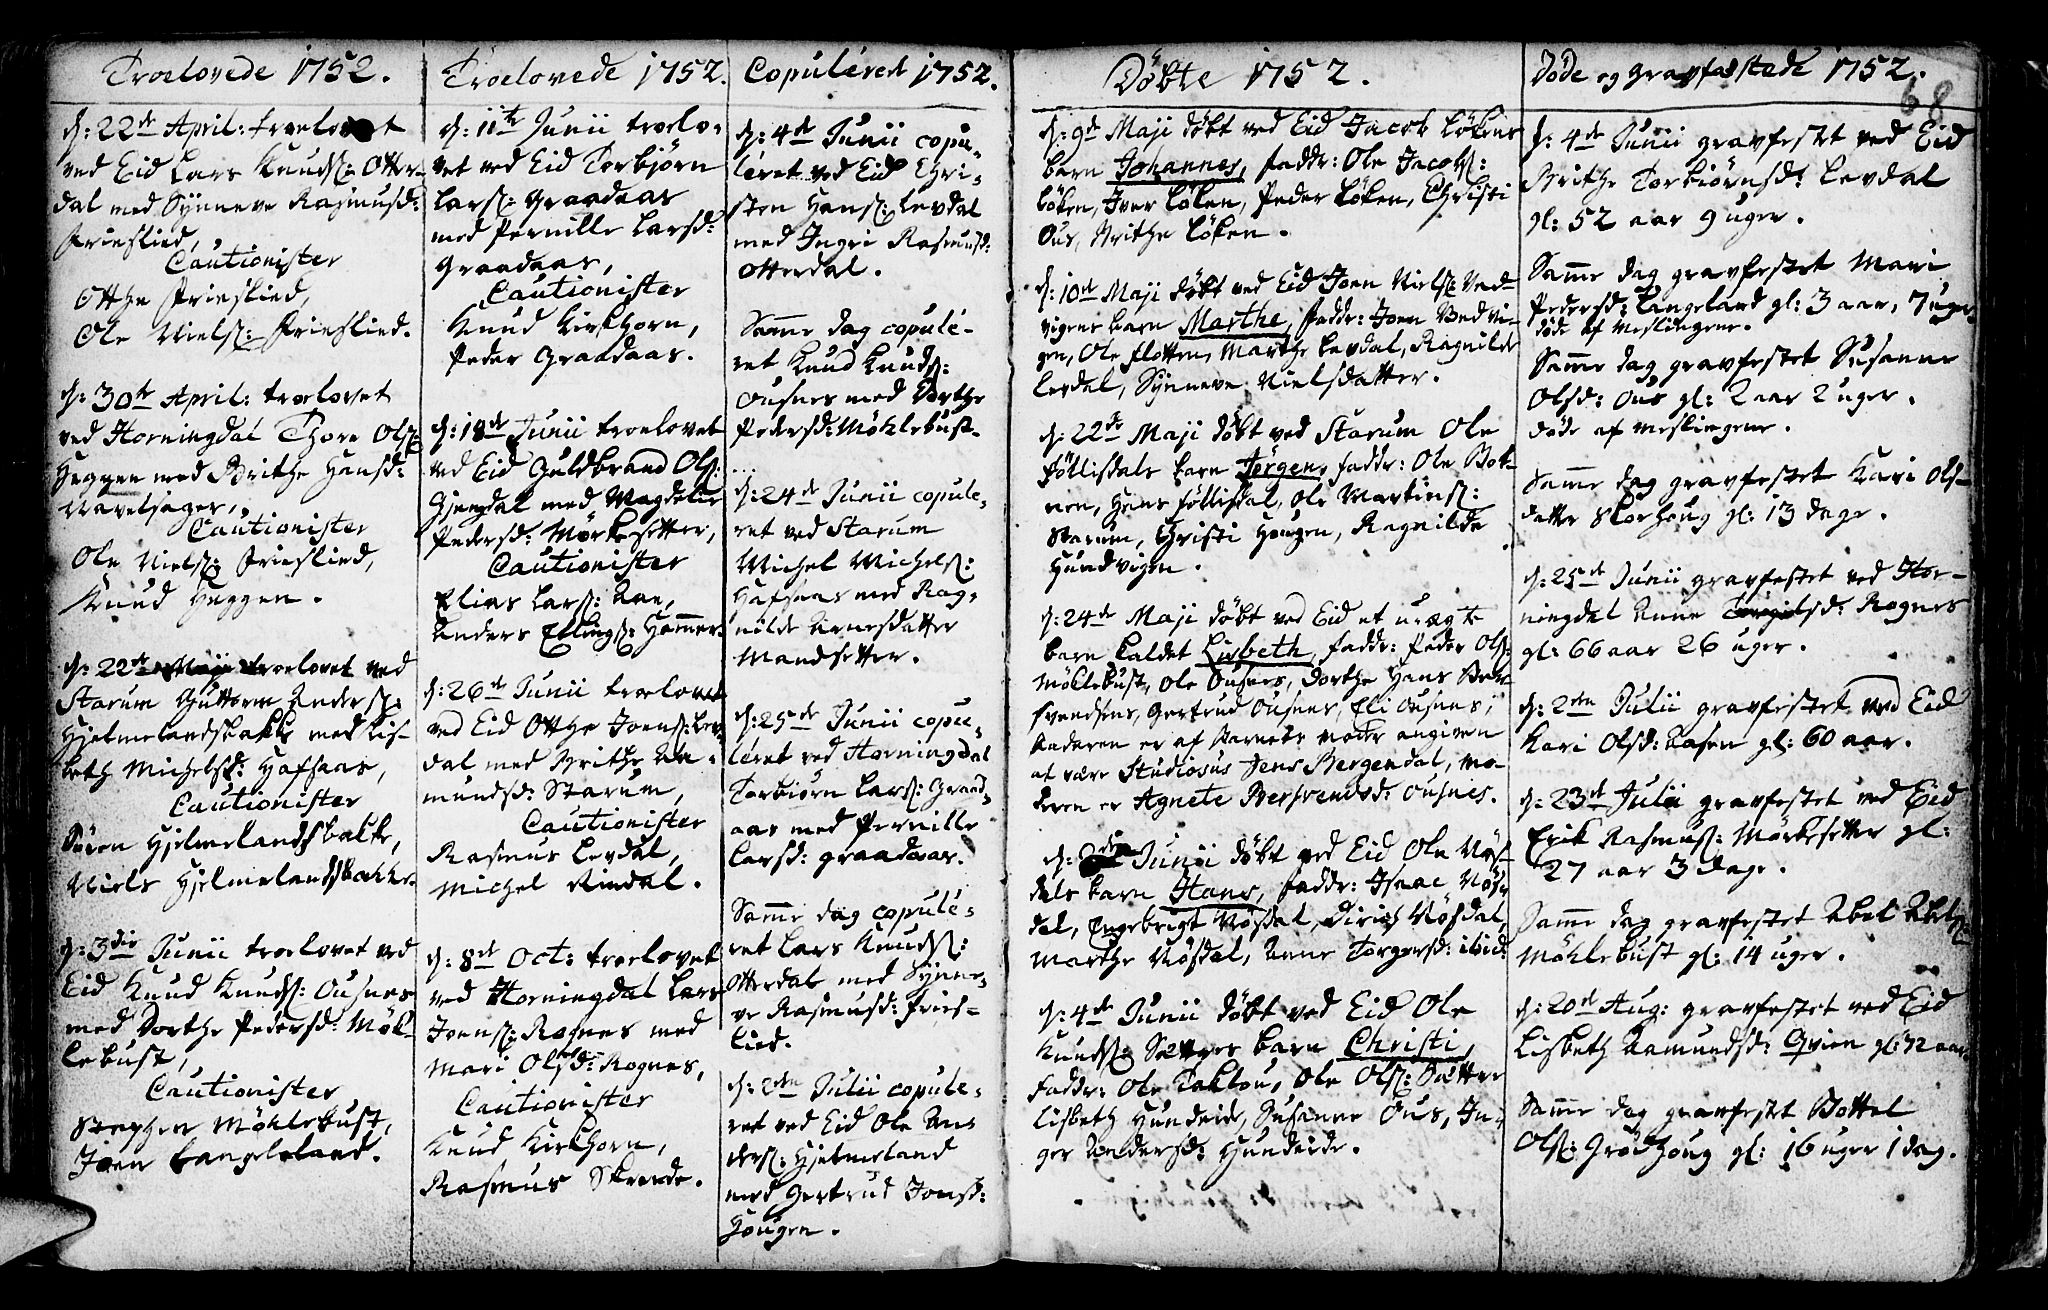 Troelovede 1752.
d: 22de April: troelovet
ved Eid Lars Knuds: Otter-
dal med Synneve Rasmusd:
Friislied,
Cautionister
Otthe Friislied,
Ole Niels: Friislied.
d: 30te April: troelovet
ved Horningdal Thore Ols:
Heggen med Brithe Hansd:
Navelsager,
Cautionister
Ole Niels: Friislied,
Knud Heggen.
d: 22de Maji troelovet ved
Starum Guttorm Anders:
Hjelmelandsbakke med Lis-
beth Michelsd: Hafsaas,
Cautionister
Søren Hjelmelandsbakke,
Niels Hjelmelandsbakke.
d: 3die Junii troelovet ved
Eid Knud Knuds: Ousnes
med Dorthe Pedersd: Møk-
lebust,
Cautionister
Stephen Møklebust,
Joen Langeland.
Troelovede 1752.
d: 11te Junii troelo-
vet ved Eid Torbjørn
Lars: Graadaas
med Pernille Larsd:
Graadaas,
Cautionister
Knud Kirkhorn,
Peder Graadaas.
d: 18de Junii troelovet
ved Eid Guldbrand Ols:
Gjengdal med Magdelie
Pedersd: Mørkesetter,
Cautionister
Elias Lars: Aae,
Anders Ellings: Hammer.
d: 26de Junii troelovet
ved Eid Otthe Joens: Lev-
dal med Brithe Aa-
mundsd: Starum,
Cautionister
Rasmus Levdal,
Michel Rindal.
d: 8de Oct: troelovet
ved Horningdal Lars
Joens: Rognes med
Mari Olsd: Rognes,
Cautionister
Knud Kirkhorn,
Rasmus Skrede.
Copulerede 1752.
d: 4de Junii copu-
leret ved Eid Chri-
sten Hans: Levdal
med Ingri Rasmusd:
Otterdal.
Samme dag copule-
ret Knud Knuds:
Ousnes med Dorthe
Pedersd: Møklebust.
d: 24de Junii copule-
ret ved Starum
Michel Michels:
Hafsaas med Rag-
nilde Arnesdatter
Mandsetter.
d: 25de Junii copu-
leret ved Horningdal
Torbiørn Lars: Graad-
aas med Pernille
Larsd: Graadaas.
Samme dag copule-
ret Lars Knuds:
Otterdal med Synne-
ve Rasmusd: Friis-
lied.
d: 2den Julii copule-
ret ved Eid Ole An-
ders: Hjelmeland
med Gertrud Jonsd:
Hougen.
Døbte 1752.
d: 9de Maji døbt ved Eid Jacob Løkens
barn Johannes, fadd: Ole Jacobs:
Løken, Iver Løken, Peder Løken, Christi
Ous, Brithe Løken.
d: 10de Maji døbt ved Eid Joen Niels: Ved-
vigens barn Marthe, fadd: Joen Vedvi-
gen, Ole Flotten, Marthe Levdal, Ragnilde
Levdal, Synneve Nielsdatter.
d: 22de Maji døbt ved Starum Ole
Føllisdals barn Jørgen, fadd: Ole Bot-
nen, Hans Føllisdal, Ole Martins:
Starum, Christi Hougen, Ragnilde
Hundvigen.
d: 24de Maji døbt ved Eid et uægte
barn kaldet Lisbeth, fadd: Peder Ols:
Møklebust, Ole Ousnes, Dorthe Hans
Gertrud Ousnes, Eli Ousnes,
faderen er af barnets moder angiven
at være Studiosus Jens Bergendal, mo-
deren er Agnete Bersvendsd: Ousnes.
d: 2den Junii døbt ved Eid Ole Nøs-
dals barn Hans, fadd: Isaac Nøs-
dal, Engebrigt Nøsdal, Dirich Nøsdal,
Marthe Nøsdal, Anne Torgersd: ibid:
d: 4de Junii døbt ved Eid Ole
Knuds: Sætres barn Christi,
fadd: Ole Taklou, Ole Ols: Sætter
Lisbeth Hundeide, Susanne Ous, In-
ger Andersd: Hundeide.
Døde og gravfæstede 1752.
68
d: 4de Junii gravfestet ved Eid
Brithe Torbiørnsd: Levdal
gl: 52 aar 9 uger.
Samme dag gravfestet Mari
Pedersd: Langeland gl: 3 aar, 7 uger
døde af Meslingerne.
Samme dag gravfestet Susanne
Olsd: Ous gl: 2 aar 2 uger.
døde af Meslingerne.
Samme dag gravfestet Kari Ols-
datter Storhoug gl: 13 dage.
d: 25de Junii gravfestet ved Hor-
ningdal Anne Rognes
gl: 66 aar 26 uger.
d: 2den Julii gravfestet ved Eid
Kari Olsd: Aasen gl: 60 aar.
d: 23de Julii gravfestet ved Eid
Erik Rasmus: Mørkesetter gl:
27 aar 3 dage.
Samme dag gravfestet Abel Abels:
Møklebust gl: 14 uger.
d: 20de Aug: gravfestet ved Eid
Lisbeth Aamundsd: Qvien gl: 72 aar
Samme dag gravfestet Bottel
Ols: Grødhoug gl: 16 uger 1 dag.